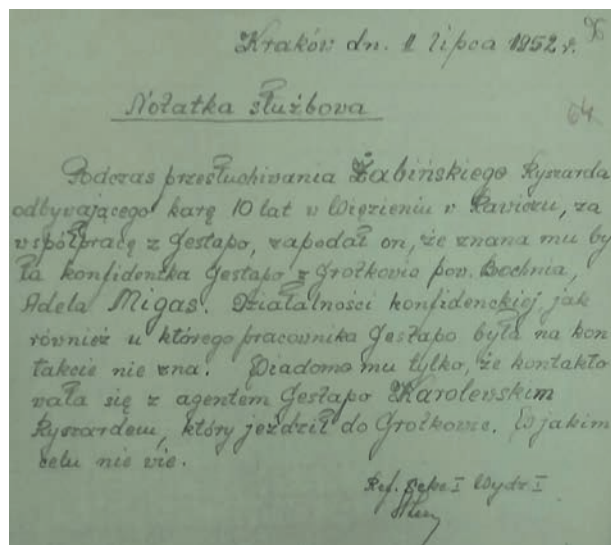 Kraków dn. 1 lipca 1952 r.
96
Notatka służbowa
64
Podczas przesłuchiwania Żabińskiego Ryszarda
odbywającego karę 10 lat w Więzieniu w Rawiczu, za
współpracę z Gestapo, zapodał on, że znana mu by
ła konfidentka Gestapo z Grotkowic pow. Bochnia,
Adela Migas. Działalności konfidenckiej jak
również u którego pracownika Gestapo była na kon
takcie nie zna. Wiadomo mu tylko, że kontakto
wała się z agentem Gestapo Karolewskim
Ryszardem, który jeździł do Grotkowic. W jakim
celu nie wie.
Ref. Sekc I Wydz I